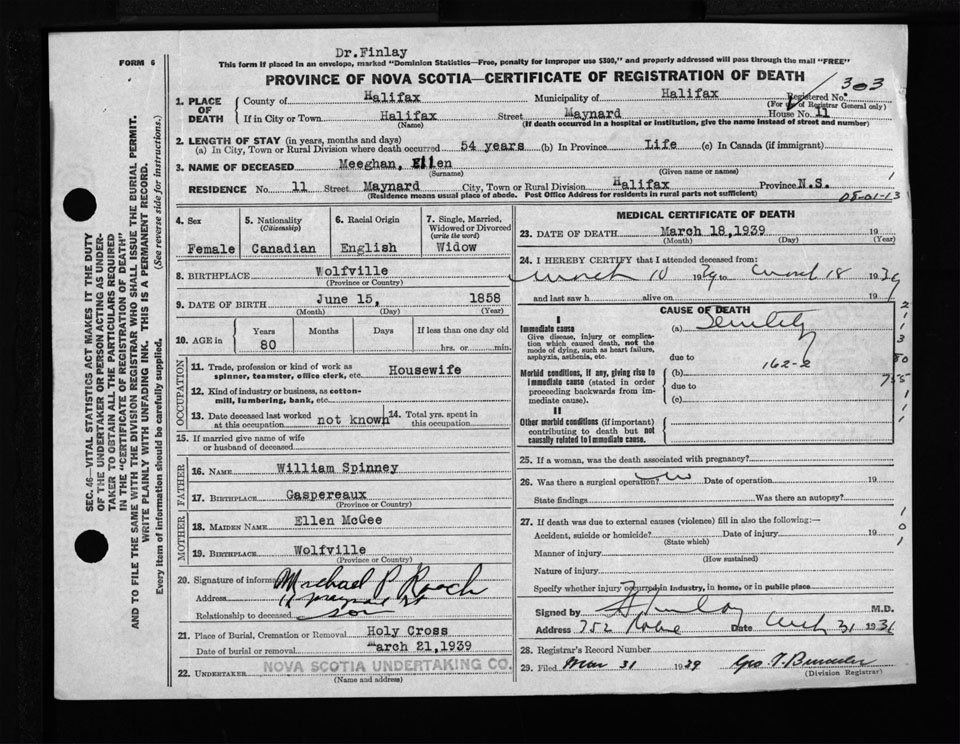 Dr. Finlay
FORM 6
This form if placed in an envelope, marked "Dominion Statistics—Free, penalty for improper use $300," and properly addressed will pass through the mail "FREE"
PROVINCE OF NOVA SCOTIA—CERTIFICATE OF REGISTRATION OF DEATH
303
1. PLACE OF DEATH
County of Halifax Municipality of Halifax Registered No.
(For use of Registrar General only)
If in City or Town Halifax Street Maynard House No. 11
(Name) (If death occurred in a hospital or institution, give the name instead of street and number)
2. LENGTH OF STAY (in years, months and days)
(a) In City, Town or Rural Division where death occurred 54 years (b) In Province Life (c) In Canada (if immigrant)
3. NAME OF DECEASED Meeghan, Ellen
(Surname) (Given name or names)
RESIDENCE No. 11 Street Maynard City, Town or Rural Division Halifax Province N.S.
(Residence means usual place of abode. Post Office Address for residents in rural parts not sufficient)
08-01-13
4. Sex
Female
5. Nationality
(Citizenship)
Canadian
6. Racial Origin
English
7. Single, Married, Widowed or Divorced
(write the word)
Widow
8. BIRTHPLACE Wolfville
(Province or Country)
9. DATE OF BIRTH June 15, 1858
(Month) (Day) (Year)
10. AGE in
Years Months Days If less than one day old
80 hrs. or min.
OCCUPATION
11. Trade, profession or kind of work as
spinner, teamster, office clerk, etc. Housewife
12. Kind of industry or business, as cotton-
mill, lumbering, bank, etc.
13. Date deceased last worked at this occupation not known
14. Total yrs. spent in this occupation
15. If married give name of wife
or husband of deceased
FATHER
16. NAME William Spinney
17. BIRTHPLACE Gaspereaux
(Province or Country)
MOTHER
18. MAIDEN NAME Ellen McGee
19. BIRTHPLACE Wolfville
(Province or Country)
20. Signature of informant Michael P Roach
Address 11 Maynard St
Relationship to deceased son
21. Place of Burial, Cremation or Removal Holy Cross
Date of burial or removal March 21, 1939
22. UNDERTAKER NOVA SCOTIA UNDERTAKING CO.
(Name and address)
MEDICAL CERTIFICATE OF DEATH
23. DATE OF DEATH March 18, 1939 19
(Month) (Day) (Year)
24. I HEREBY CERTIFY that I attended deceased from:
March 10 1939 to March 18 1939
and last saw h alive on 19
CAUSE OF DEATH
I
Immediate cause
Give disease, injury or complica-
tion which caused death, not the
mode of dying, such as heart failure,
asphyxia, asthenia, etc.
(a) Senility
due to
162-2
Morbid conditions, if any, giving rise to
immediate cause (stated in order
proceeding backwards from im-
mediate cause).
(b)
due to
(c)
II
Other morbid conditions (if important)
contributing to death but not
causally related to immediate cause.
25. If a woman, was the death associated with pregnancy?
26. Was there a surgical operation? no Date of operation 19
State findings Was there an autopsy?
27. If death was due to external causes (violence) fill in also the following:—
Accident, suicide or homicide? Date of injury 19
(State which)
Manner of injury
(How sustained)
Nature of injury
Specify whether injury occurred in industry, in home, or in public place
Signed by Finlay M.D.
Address 752 Robie Date March 31 193
28. Registrar's Record Number
29. Filed Mar 31 1939 Geo. T.
(Division Registrar)
SEC. 46—VITAL STATISTICS ACT MAKES IT THE DUTY
OF THE UNDERTAKER OR PERSON ACTING AS UNDER-
TAKER TO OBTAIN ALL THE PARTICULARS REQUIRED
IN THE "CERTIFICATE OF REGISTRATION OF DEATH"
AND TO FILE THE SAME WITH THE DIVISION REGISTRAR WHO SHALL ISSUE THE BURIAL PERMIT.
WRITE PLAINLY WITH UNFADING INK. THIS IS A PERMANENT RECORD.
Every item of information should be carefully supplied. (See reverse side for instructions.)